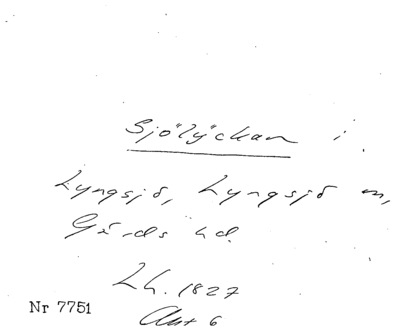 Sjölÿckan i
Lyngsjö, Lyngsjö sn,
Gärds hd.
Lh. 1827
Akt 6
Nr 7751